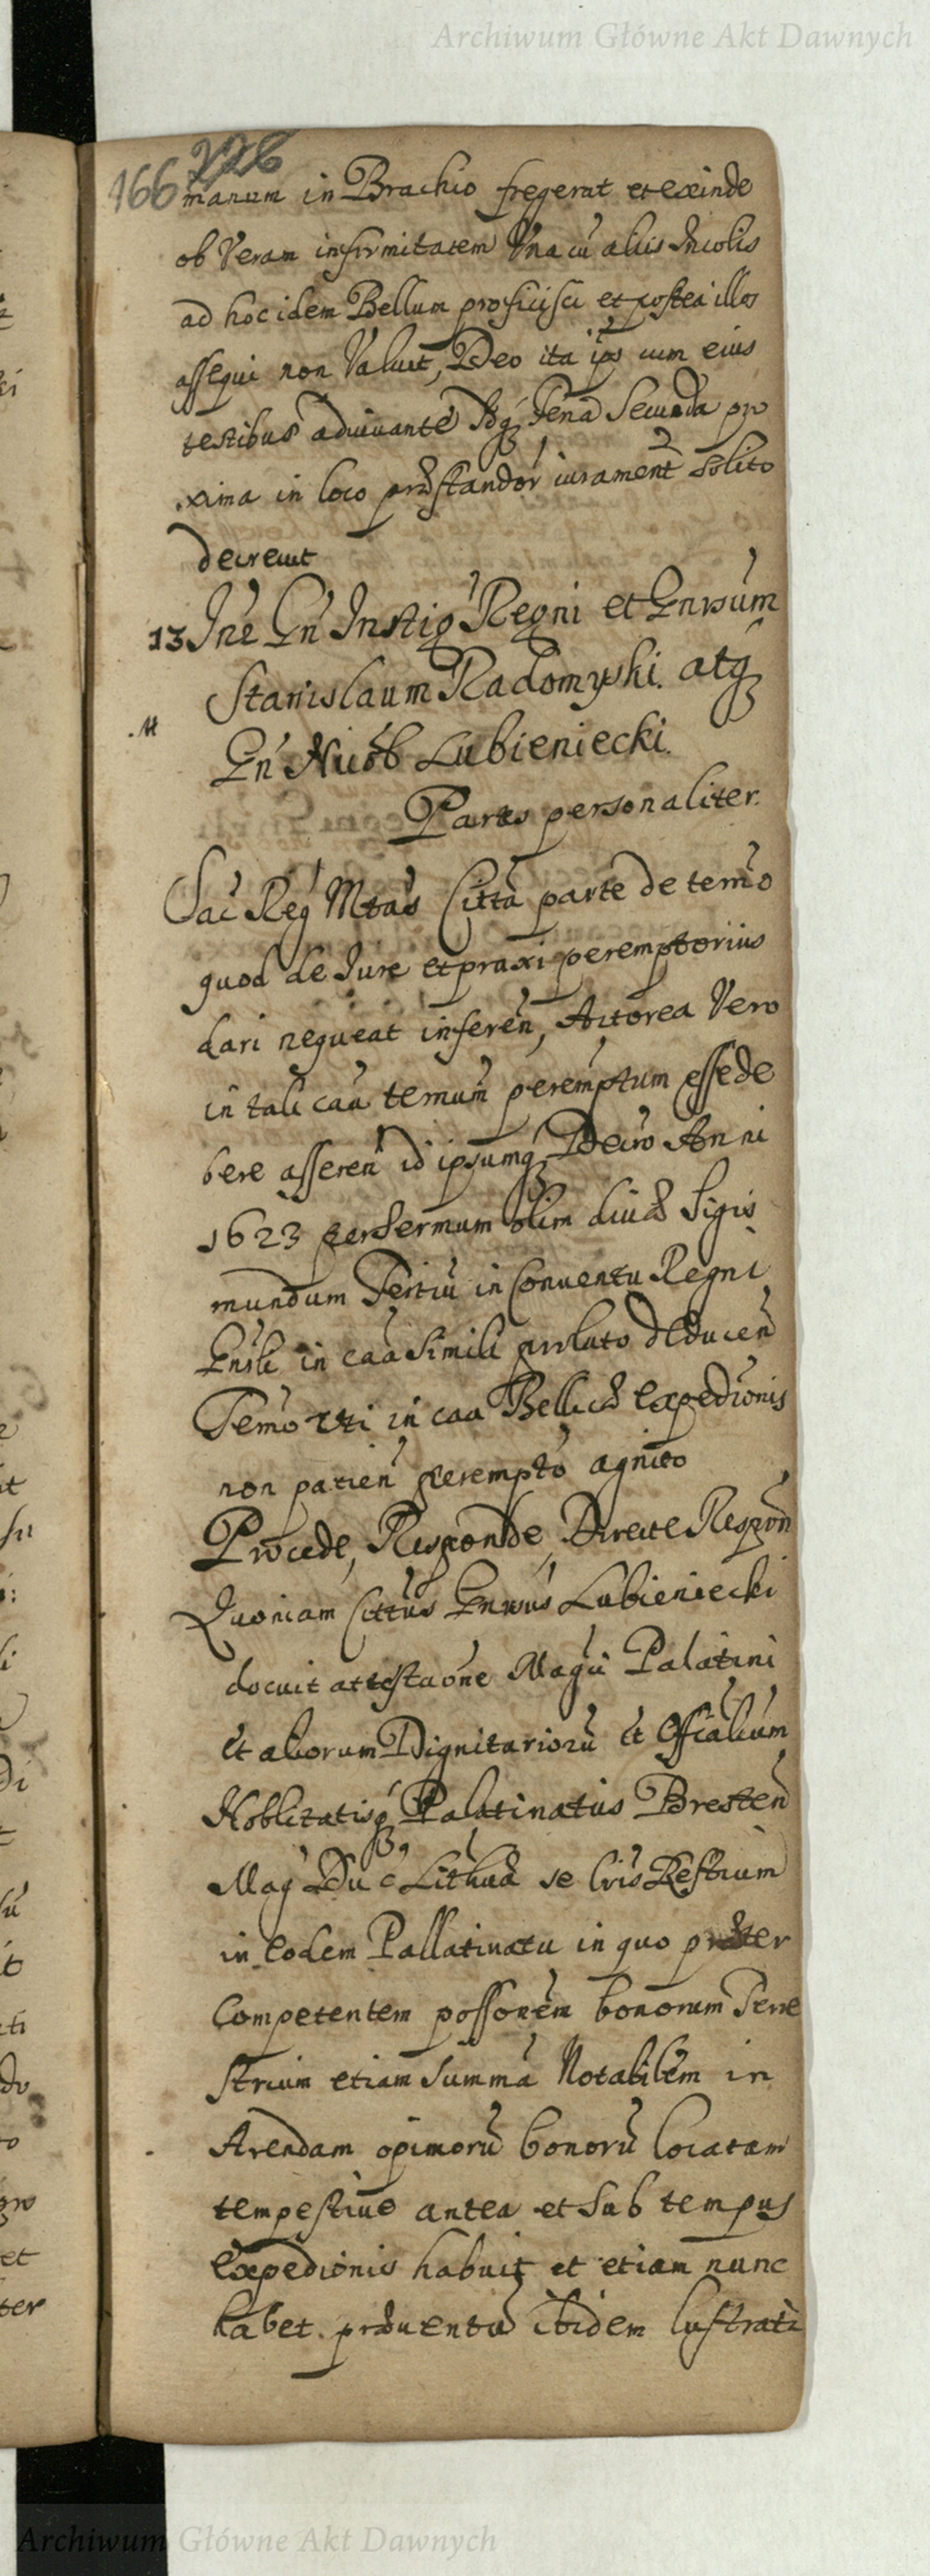 Archiwum Główne Akt Dawnych
166 228
manum in Brachio fregerat et exinde
ob Veram infirmitatem Vna cũ aliis Incolis
ad hoc idem Bellum proficisci et postea illos
assequi non Valuit, Deo ita ips cum eius
testibus adiuvante Idq Feria Secunda pro
xima in loco præstandor iurament solito
decrevit
13 Inr Gn Instig Regni et Gnrsum
Stanislaum Radomyski. atq
Gn Nicob Lubieniecki.
Partes personaliter.
Sac Reg Mtas Citta parte de termo
quod de Jure et praxi peremptorius
dari nequeat inferen, Actorea Vero
in tali caa termum peremptum esse de
bere asseren id ipsumq Decro Anni
1623 per Sermum olim divæ Sigis
mundum Tertiũ in Conventu Regni
Gnrli in caa simili prolato deducen
Termo uti in caa Bellicæ expedionis
non patien perempto agnito
Procede, Responde, Directe Respon
Quoniam Cittus Gnrsus Lubieniecki
docuit attestaone Magci Palatini
et aliorum Dignitariorũ et Officalium
Noblitatisq Palatinatus Bresten
Mag Duc Lithuæ se Cris Festium
in eodem Pallatinatu in quo præter
Competentem possonem bonorum Terre
strium etiam Summã Notabilem in
Arendam opimorũ bonorũ locatam
tempestive antea et sub tempus
expedionis habuit et etiam nunc
habet. præventũ ibidem lustrati
Archiwum Główne Akt Dawnych